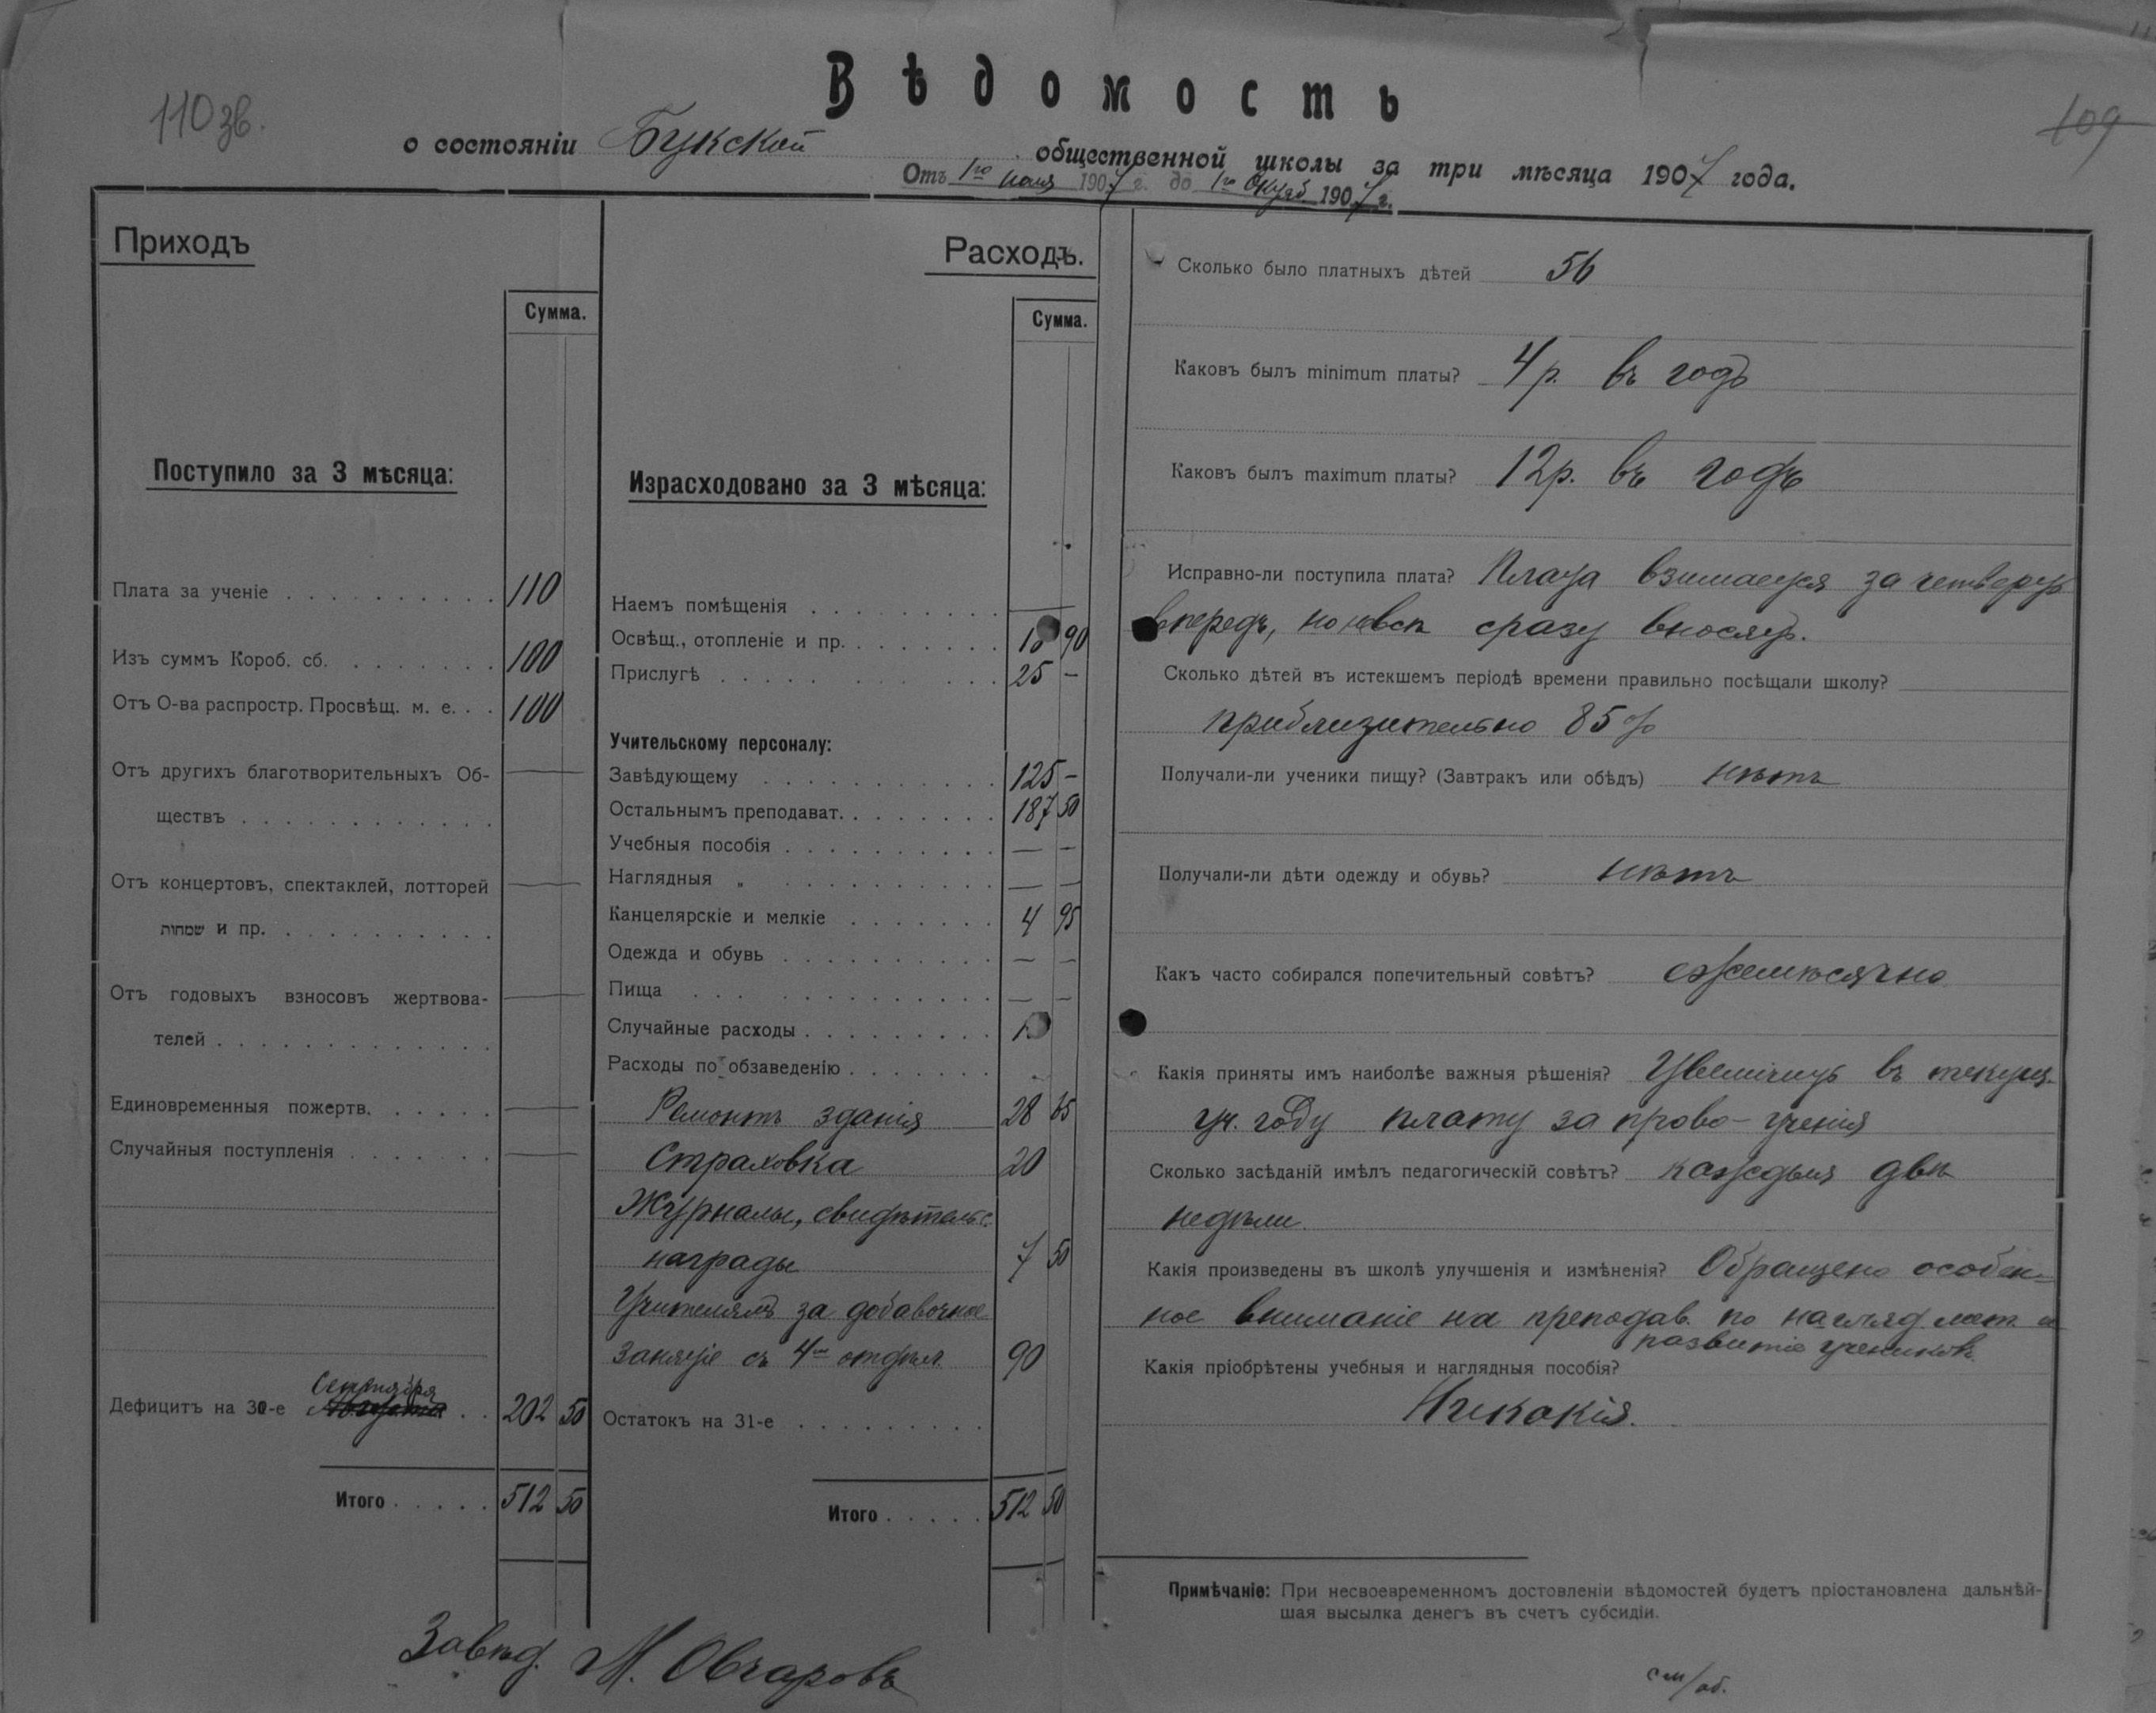 Вѣдомость
110 зв.
109
о состоянiи Букской общественной школы за три мѣсяца 1907 года.
Отъ 1го Июля 1907 г. до 1го Октяб. 1907 г.
Приходъ
Сумма.
Поступило за 3 мѣсяца:
Плата за ученiе . . . . . . . . . . 110
Изъ суммъ Короб. сб. . . . . . . . 100
Отъ О-ва распростр. Просвѣщ. м. е. . . 100
Отъ другихъ благотворительныхъ Об- —
ществъ . . . . . . . . . . . .
Отъ концертовъ, спектаклей, лотторей —
שמחות и пр. . . . . . . . . . .
Отъ годовыхъ взносовъ жертвова- —
телей . . . . . . . . . . . . .
Единовременныя пожертв. . . . . . —
Случайныя поступленiя . . . . . . . —
Сентября
Дефицитъ на 30-е Августа . . 202 50
Итого . . . . . 512 50
Расходъ.
Сумма.
Израсходовано за 3 мѣсяца:
Наемъ помѣщенiя . . . . . . . . . —
Освѣщ., отопленiе и пр. . . . . . . . 90
Прислугѣ . . . . . . . . . . . 25 —
Учительскому персоналу:
Завѣдующему . . . . . . . . . . . 125 —
Остальнымъ преподават. . . . . . . . 187 50
Учебныя пособiя . . . . . . . . . . — —
Наглядныя „ . . . . . . . . . . — —
Канцелярскiе и мелкiе . . . . . . . 4 95
Одежда и обувь . . . . . . . . . . — —
Пища . . . . . . . . . . . . . — —
Случайные расходы . . . . . . . . .
Расходы по обзаведенiю . . . . . . .
Ремонтъ зданiя 28 65
Страховка 20
Журналы, свидѣтельс.
награды 7 50
Учителямъ за добавочное
занятiе съ 4мъ отдѣл. 90
Остатокъ на 31-е . . . . . . . . .
Итого . . . . . 512 50
Сколько было платныхъ дѣтей 56
Каковъ былъ minimum платы? 4 р. въ годъ
Каковъ былъ maximum платы? 12 р. въ годъ
Исправно-ли поступила плата? Плата взимается за четверть
впередъ, но не всѣ сразу вносятъ.
Сколько дѣтей въ истекшемъ перiодѣ времени правильно посѣщали школу?
приблизительно 85%
Получали-ли ученики пищу? (Завтракъ или обѣдъ) нѣтъ
Получали-ли дѣти одежду и обувь? нѣтъ
Какъ часто собирался попечительный совѣтъ? ежемѣсячно
Какiя приняты имъ наиболѣе важныя рѣшенiя? Увеличить въ текущ.
уч. году плату за право-ученiя
Сколько засѣданiй имѣлъ педагогическiй совѣтъ? каждыя двѣ
недѣли.
Какiя произведены въ школѣ улучшенiя и измѣненiя? Обращено особен-
ное вниманiе на преподав. по нагляд. мет. и
развитiе учениковъ.
Какiя прiобрѣтены учебныя и наглядныя пособiя?
Никакiя.
Примѣчанiе: При несвоевременномъ достовленiи вѣдомостей будетъ прiостановлена дальнѣй-
шая высылка денегъ въ счетъ субсидiи.
Завѣд. М. Овчаровъ
см/об.